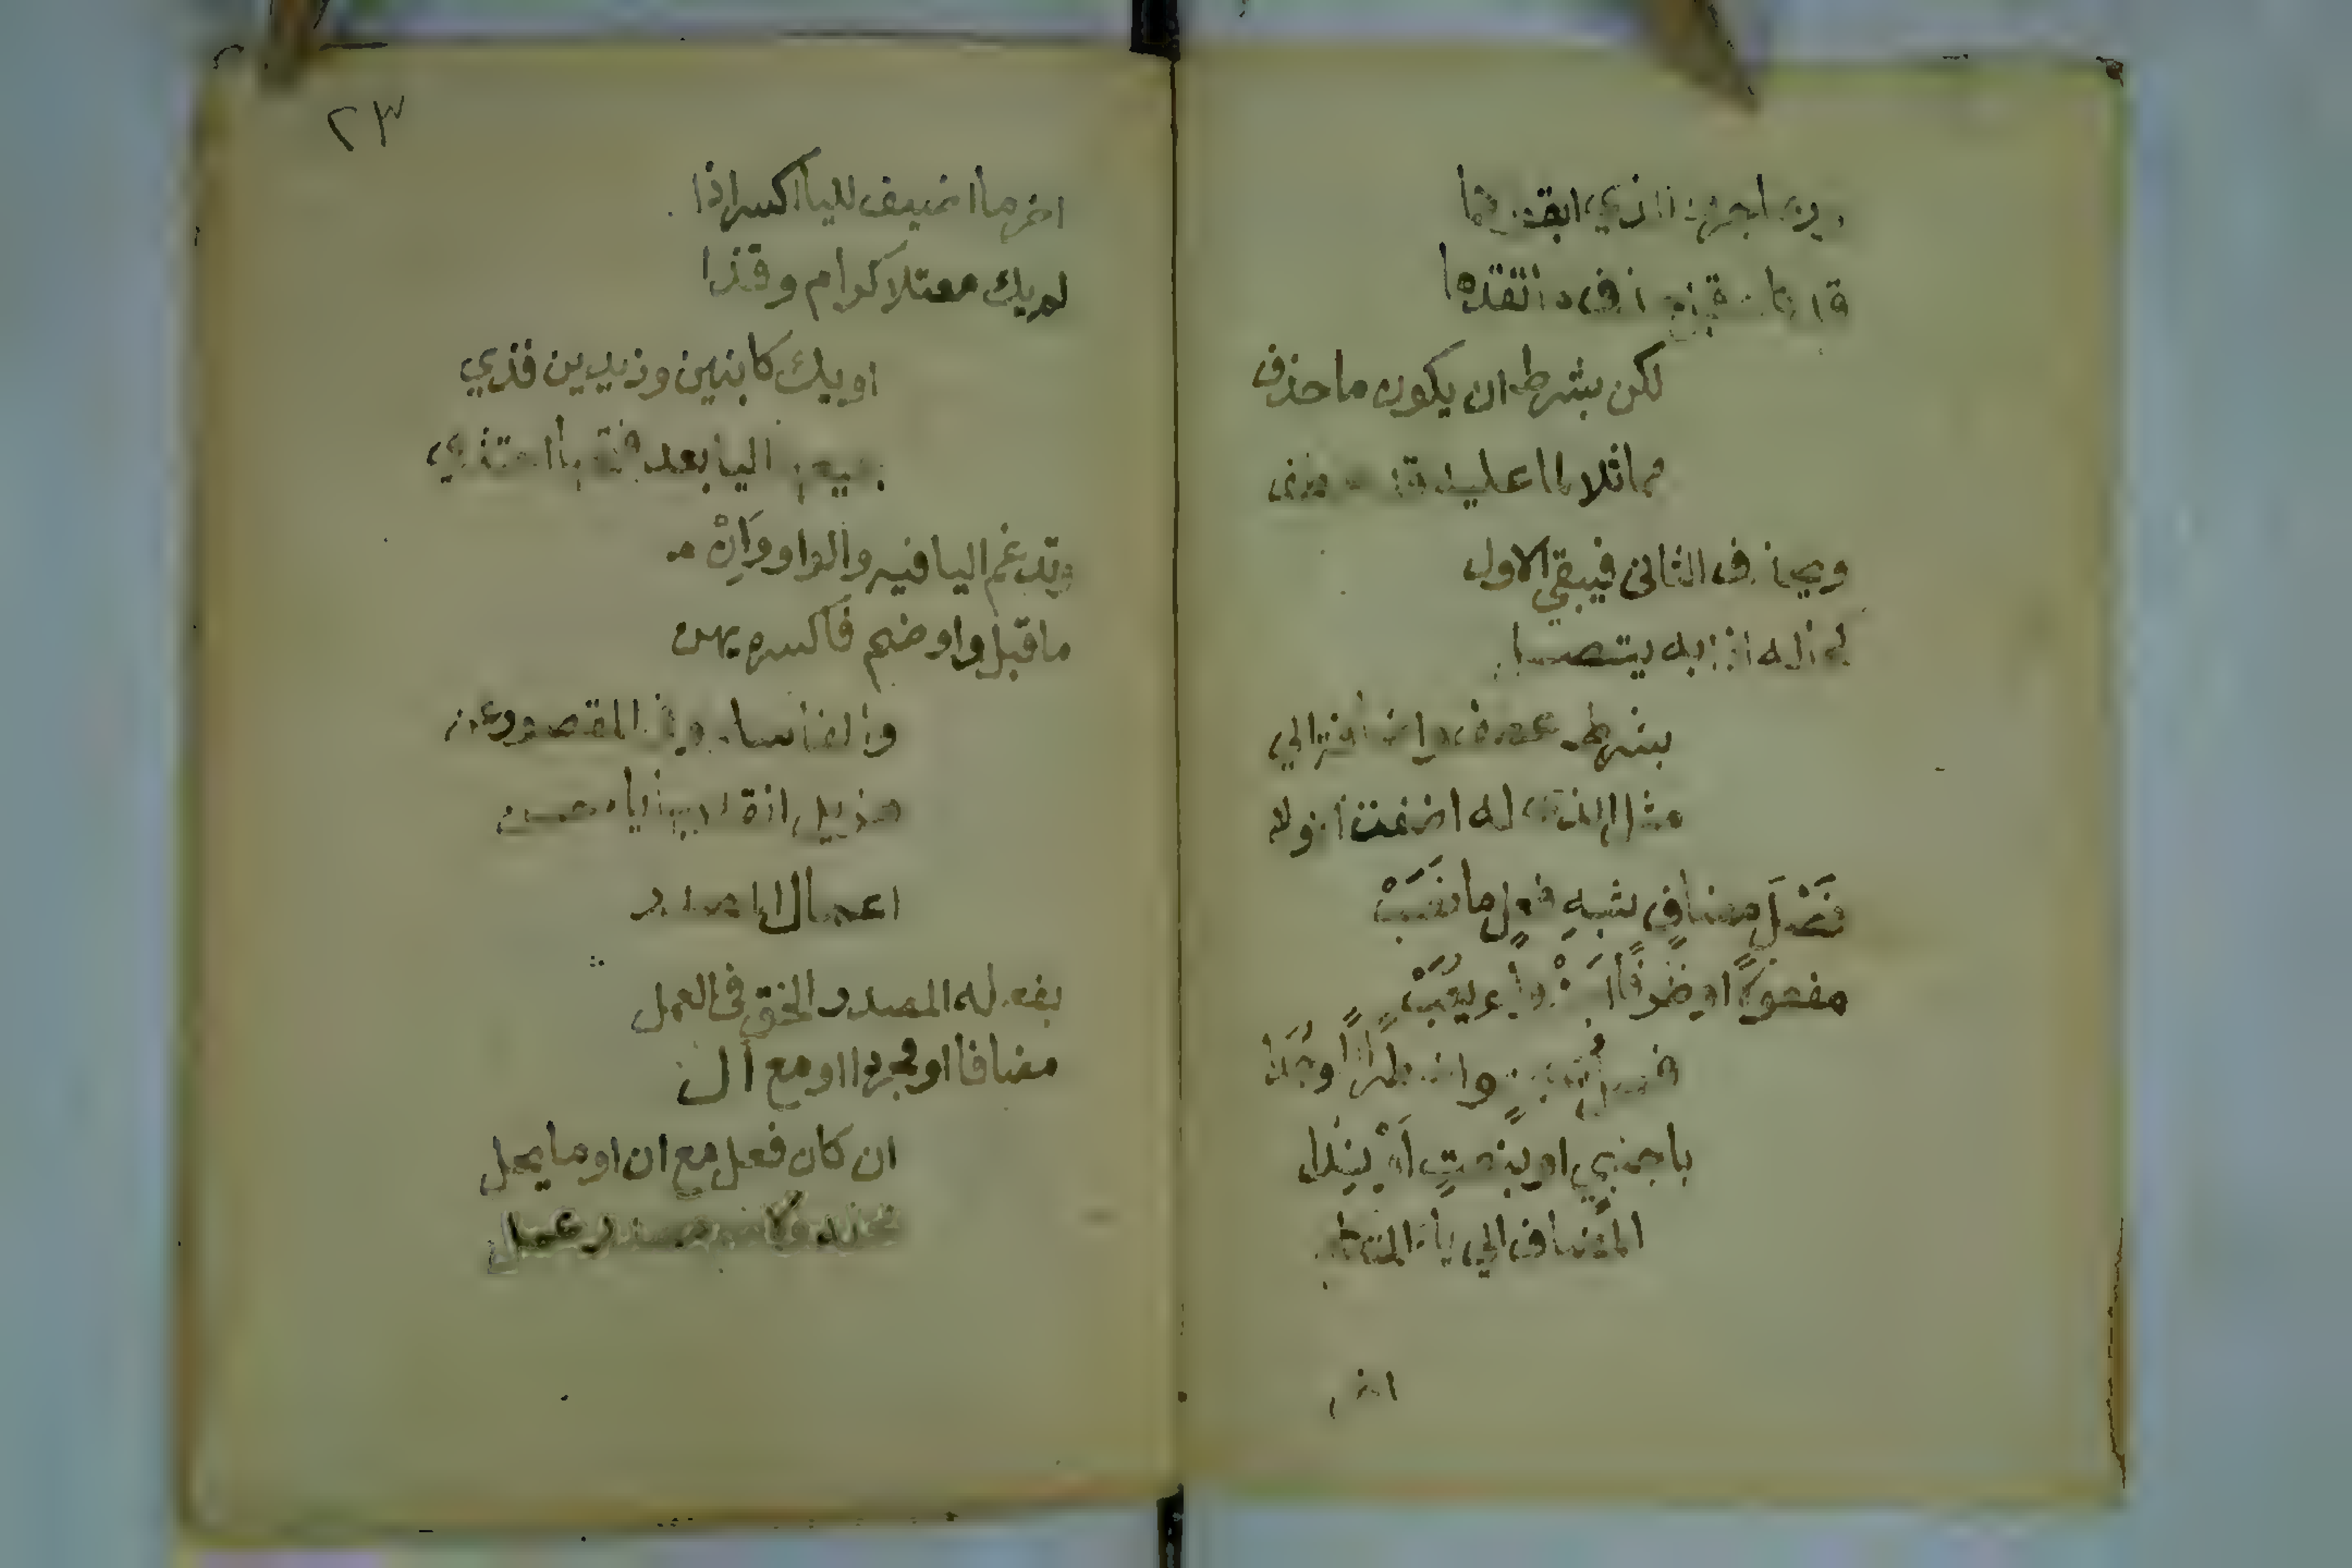 وربما جروا الذي ابقوا كما
قد كان قبل حذف ما تقدما
لكن بشرط ان يكون ما حذف
مماثلا لما عليه قد عطف
ويحذف الثاني فيبقي الاول
كحاله اذا به يتصل
بشرط عطف واضافة الي
مثل الذي له اضفت الاولا
فَصْلَ مضافٍ شبهِ فعلٍ ما نصَبْ
مفعولًا او ظرفًا اجزْ ولم يُعَبْ
فصل يمينٍ واضطرارًا وُجدا
باجنبي او بنعتٍ اَوْ نِدا
المضاف الي ياء المتكلم
اخر
٢٣
اخر ما اضيف لليا اكسر اذا
لم يك معتلا كرام وقذا
او يك كابنين وزيدين فذي
جميعها اليا بعد فتحها احتذي
وتدغم اليا فيه والواو وَاِنْ
ما قبل واو ضم فاكسره يهن
والفا سلم وفي المقصور عن
هذيل انقلابها ياء حسن
اعمال المصدر
بفعله المصدر الحق في العمل
مضافا او مجردا او مع ال
ان كان فعل مع ان او ما يحل
محله ولاسم مصدر عمل